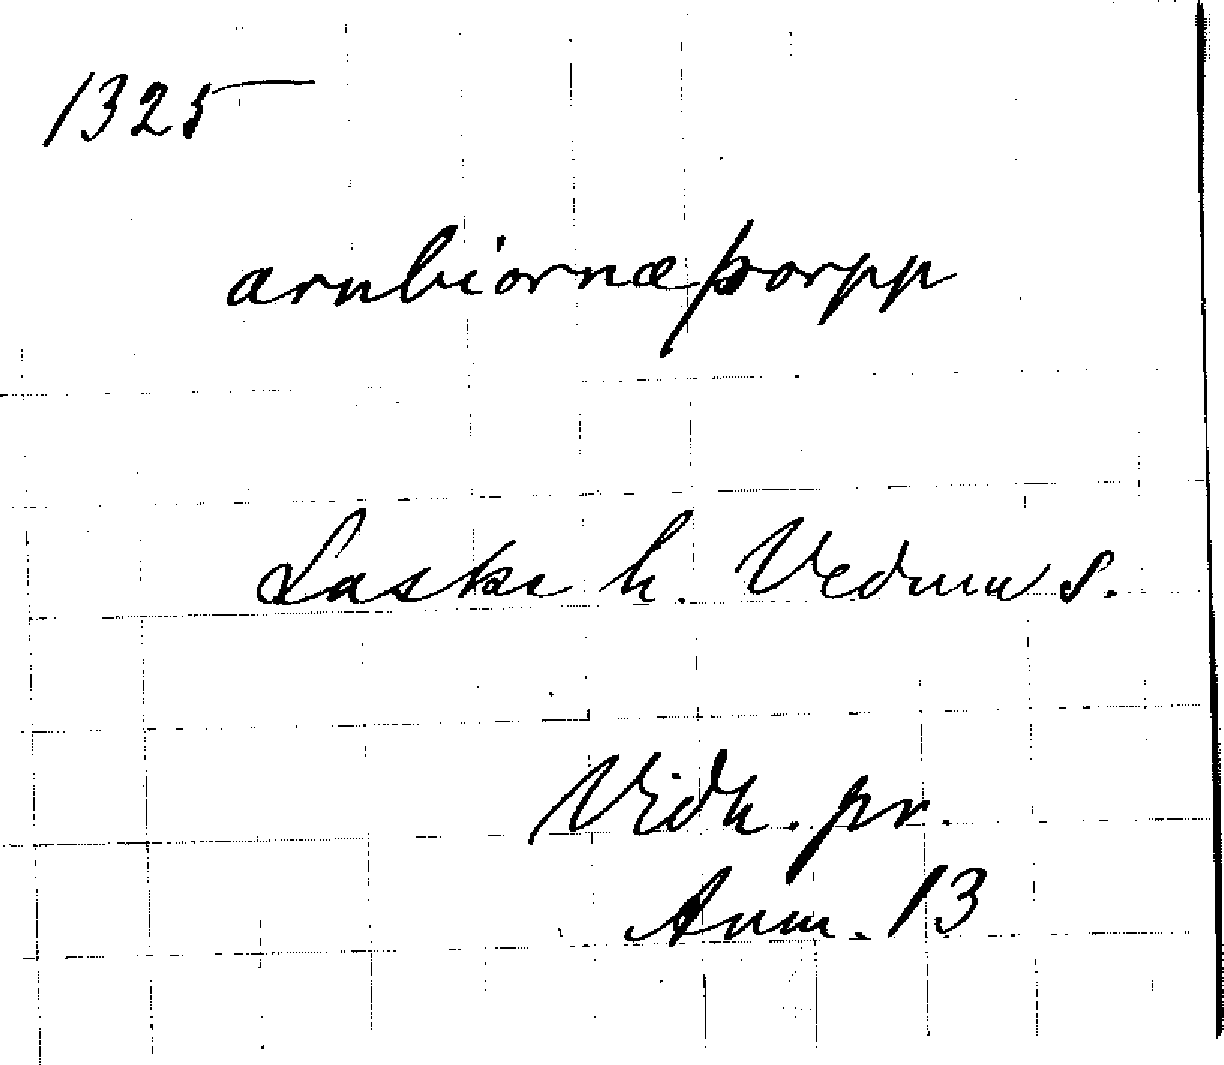 1325
arnbiornæþorpp
Laske h. Vedum s.
Vidh. pr.
Anm. 13